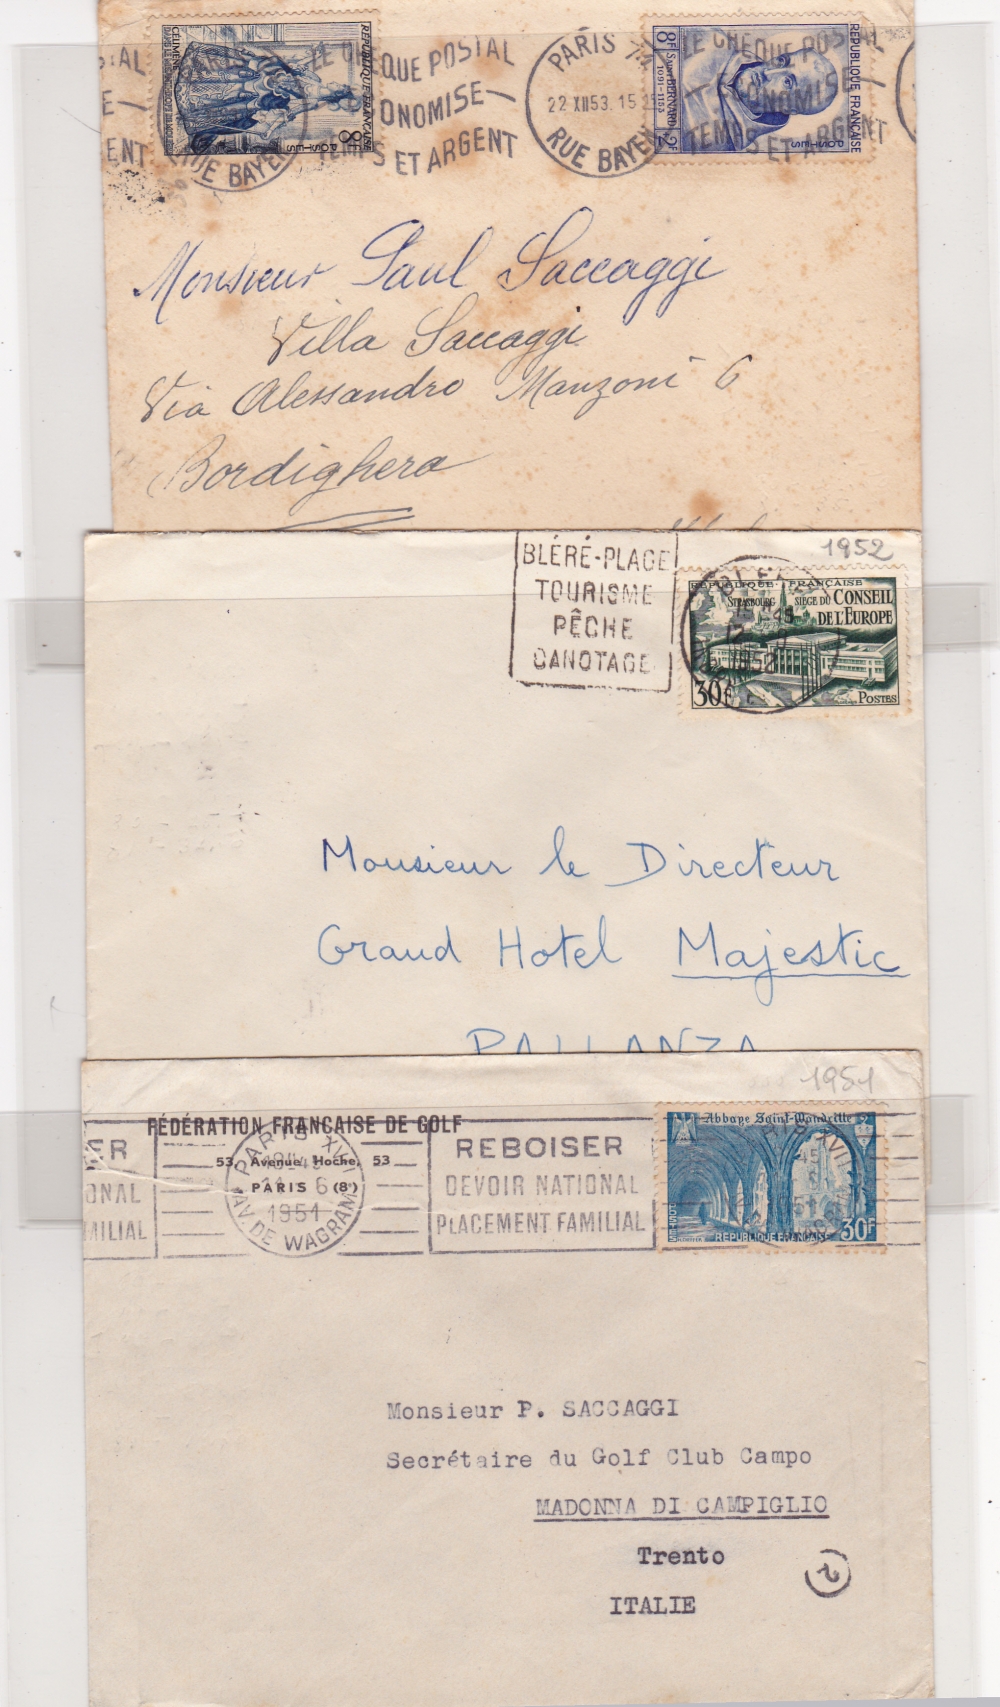 TAL
E —
ENT
RUE BAYEN
CÉLIMÈNE
RÉPUBLIQUE FRANÇAISE
8F
POSTES
LE CHÈQUE POSTAL
ÉCONOMISE —
TEMPS ET ARGENT
PARIS
22 XII53. 15
RUE BAYEN
8F St BERNARD +2F
1091-1153
RÉPUBLIQUE FRANÇAISE
POSTES
LE CHÈQUE POSTAL
ÉCONOMISE —
TEMPS ET ARGENT
Monsieur Paul Saccaggi
Villa Saccaggi
Via Alessandro Manzoni 6
Bordighera
1952
BLÉRÉ-PLAGE
TOURISME
PÊCHE
CANOTAGE
RÉPUBLIQUE FRANÇAISE
STRASBOURG SIÈGE DU CONSEIL
DE L'EUROPE
30F
POSTES
Monsieur le Directeur
Grand Hotel Majestic
PALLANZA
1951
FÉDÉRATION FRANCAISE DE GOLF
53, Avenue Hoche, 53
PARIS (8e)
ER
ONAL
MILIAL
PARIS XVII
6
1951
AV. DE WAGRAM
REBOISER
DEVOIR NATIONAL
PLACEMENT FAMILIAL
Abbaye Saint-Wandrille
RÉPUBLIQUE FRANÇAISE
30F
Monsieur P. SACCAGGI
Secrétaire du Golf Club Campo
MADONNA DI CAMPIGLIO
Trento
ITALIE
2